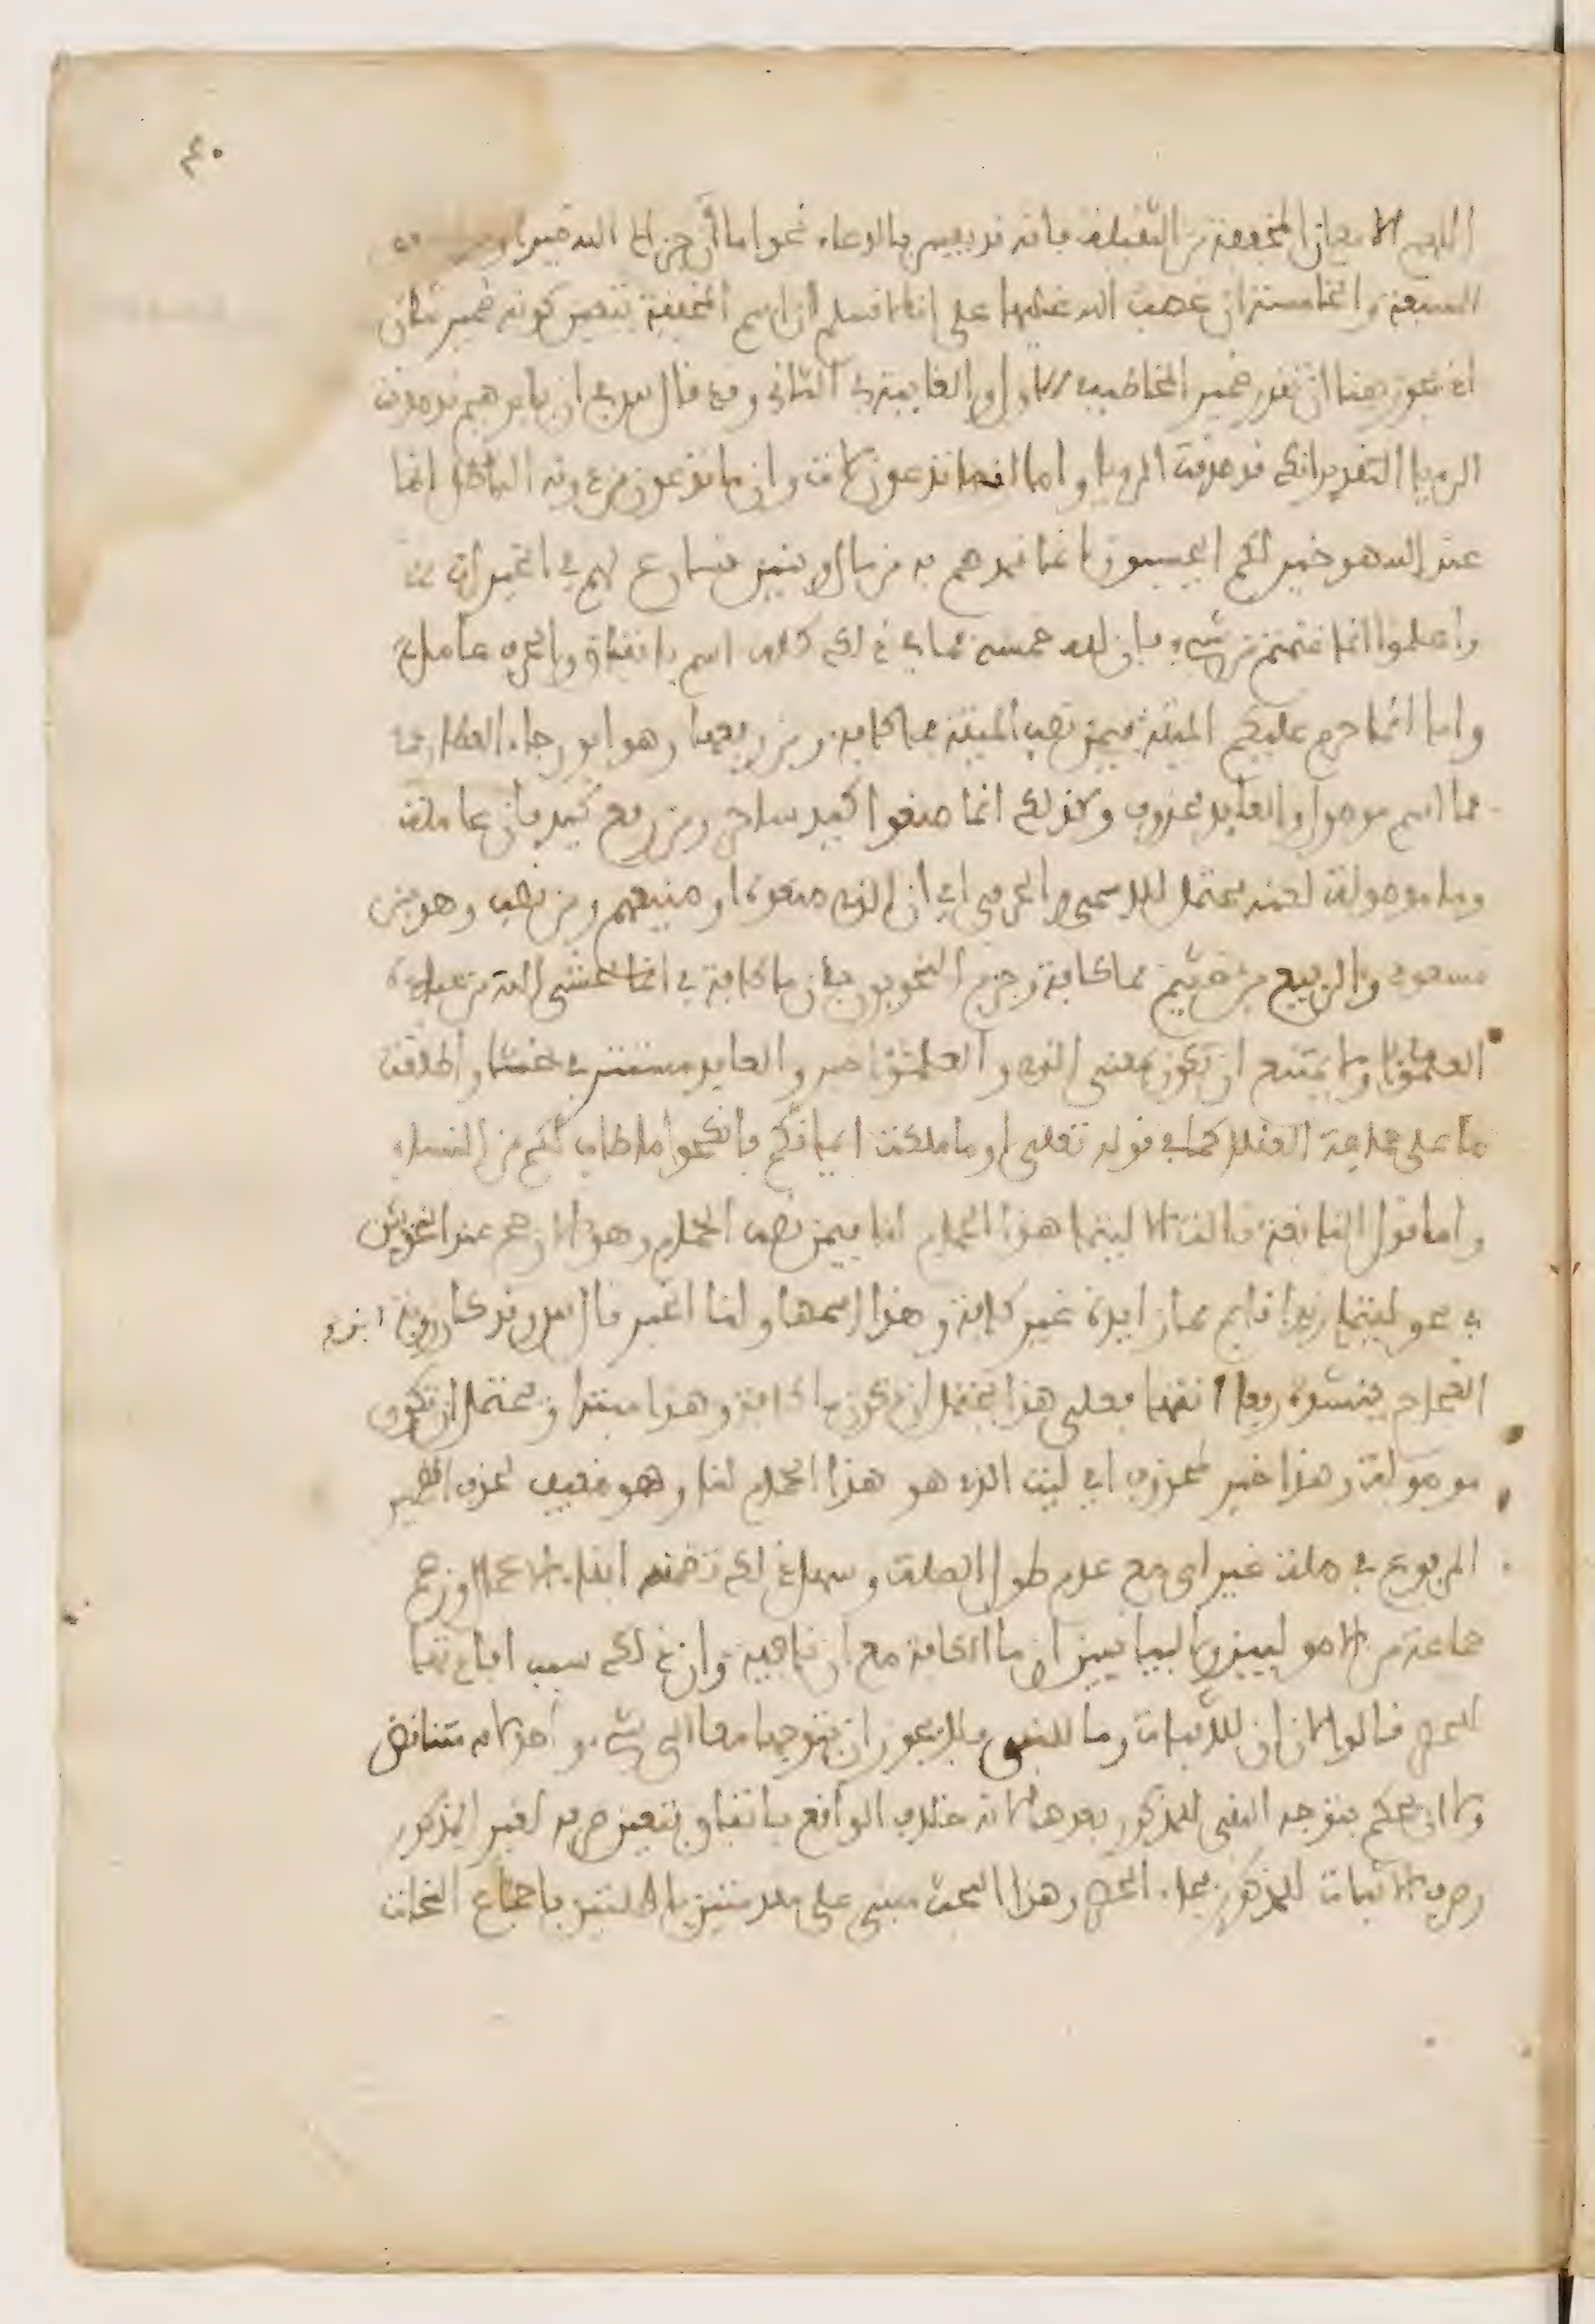 ٤٠
اللهم الا مع ان المخففة من الثقيلة فانه قد يفسر بالدعاء نحو اما ان جزاك الله خيرا
السبعة والخامسة ان غضب الله عليها على انا لا نسلم ان اسم المخففة يتعين كونه ضمير شان
اذ يجوز هنا ان تقدر ضمير المخاطب في الاول والغايبة في الثاني وقد قال س في ان يابرهيم قد صدقت
الرويا التقدير انك قد صدقت الرويا واما انما تدعون لات وان ما تدعون من دونه الباطل انما
عند الله هو خير لكم ايحسبون انما نمدهم به من مال وبنين نسارع لهم في الخيرات
واعلموا انما غنمتم من شيء فان لله خمسه فما في ذلك كله اسم باتفاق والحرف عامل
واما انما حرم عليكم الميتة فيمن نصب الميتة فما كافة ومن رفعها وهو ابو رجاء العطاردي
فما اسم موصول والعايد محذوف وكذلك انما صنعوا كيد ساحر ومن رفع كيد فان عاملة
وما موصولة لكنه محتمل للاسمي والحرفي اي ان الذي صنعوه او صنعهم ومن نصب وهو بن
مسعود والربيع بن خثيم فما كافة وجزم النحويون بان ما كافة في انما يخشى الله من عباده
العلمؤا ولا يمتنع ان تكون بمعنى الذي والعلمؤا خبر والعايد مستتر في يخشا واطلقت
ما على جماعة العقلا كما في قوله تعلى او ما ملكت ايمانكم فانكحوا ما طاب لكم من النساء
واما قول النابغة قالت الا ليتما هذا الحمام لنا فيمن نصب الحمام وهو الارجح عند النحويين
في نحو ليتما زيدا قايم فما زايدة غير كافة وهذا اسمها ولنا الخبر قال س وقد كان روبة ابن
العجاج ينشده رفعا انتهى فعلى هذا يحتمل ان تكون ما كافة وهذا مبتدا ويحتمل ان تكون
موصولة وهذا خبر لمحذوف اي ليت الذي هو هذا الحمام لنا وهو ضعيف لحذف الضمير
المرفوع في صلة غير اي مع عدم طول الصلة وسهل ذلك تضمنه ابقاء الاعمال وزعم
جماعة من الاصوليين والبيانيين ان ما الكافة مع ان نافية وان ذلك سبب افادتها
للحصر قالوا لان ان للاثبات وما للنفي فلا يجوز ان يتوجها معا الى شيء واحد لانه تناقض
ولا ان يحكم بتوجه النفي للمذكور بعدها لانه خلاف الواقع باتفاق فتعين صرفه لغير المذكور
وصرف الاثبات للمذكور فجاء الحصر وهذا البحث مبني على مقدمتين باطلتين باجماع النحات